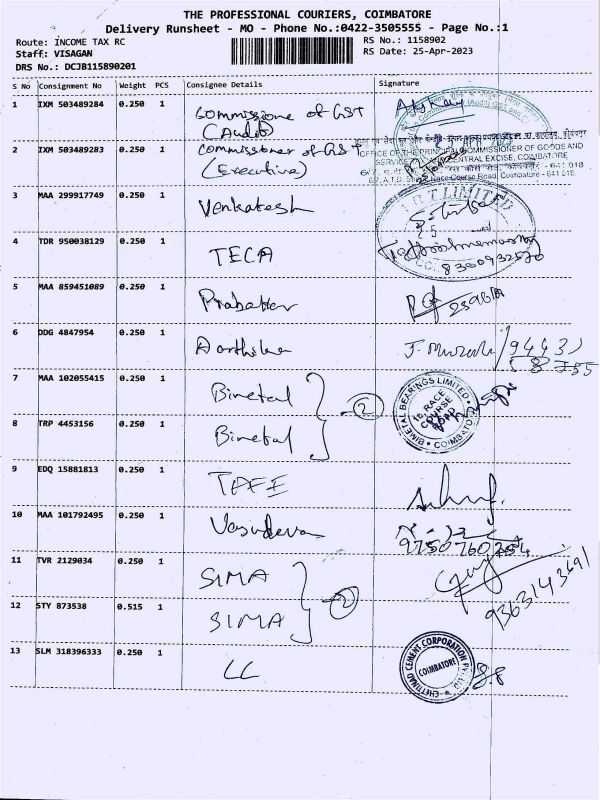 THE PROFESSIONAL COURIERS, COIMBATORE
Delivery Runsheet - MO - Phone No.:0422-3505555 - Page No.:1
Route: INCOME TAX RC
RS No.: 1158902
Staff: VISAGAN
RS Date: 25-Apr-2023
DRS No.: DCJB115890201
S No Consignment No Weight PCS Consignee Details Signature
1 IXM 503489284 0.250 1 Commissione of GST
(Audit)
2 IXM 503489283 0.250 1 Commissioner of GST
(Executive)
OFFICE OF THE PRINCIPAL COMMISSIONER OF GOODS AND
SERVICE CENTRAL EXCISE, COIMBATORE
6/7, A.T.D. Street, Race Course Road, Coimbatore - 641 018.
3 MAA 299917749 0.250 1 Venkatesh
LIMITED
4 TDR 950038129 0.250 1 TECA
8300932570
5 MAA 859451089 0.250 1 Prabakar
6 DDG 4847954 0.250 1
7 MAA 102055415 0.250 1 Bimetal
2
BIMETAL BEARINGS LIMITED
18, RACE
COURSE
ROAD
COIMBATORE
8 TRP 4453156 0.250 1 Bimetal
9 EDQ 15881813 0.250 1 TAFE
10 MAA 101792495 0.250 1 Vasudevan
9750760254
11 TVR 2129034 0.250 1 SIMA
2
9363143691
12 STY 873538 0.515 1 SIMA
13 SLM 318396333 0.250 1 CC
CHETTINAD CEMENT CORPORATION PVT. LTD
COIMBATORE